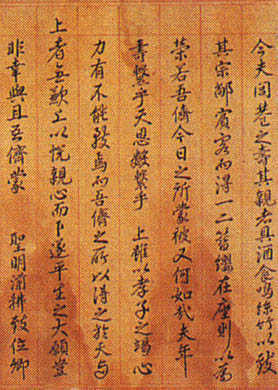 今夫閭巷之壽其親者具酒食鳴絲竹以致
其宗鄰賓客而得一二簪纓在座則以為
榮若吾儕今日之所蒙被又何如哉夫年
壽繫乎天恩數繫乎 上雖以孝子之竭心
力有不能致焉而吾儕之所以得之於天與
上者吾歟工以悅親心而卜遂平生之大願豈
非幸與且吾儕蒙 聖明濯拂致位卿